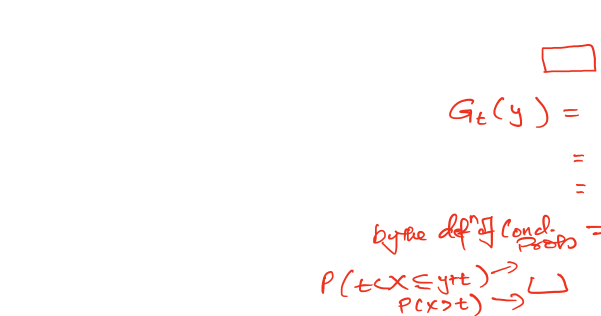 G_t(y) =
=
=
by the defⁿ of Cond. Prob =
P(t<X≤y+t) →
P(X>t) →